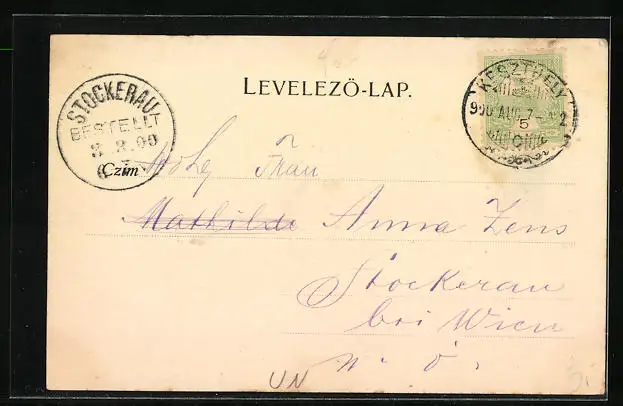 LEVELEZŐ-LAP.
KESZTHELY
900 AUG. 7
5
STOCKERAU
BESTELLT
8 8.00
(Czim
Frau
Mathilde Anna Zens
Stockerau
bei Wien
N. Ö.
UN